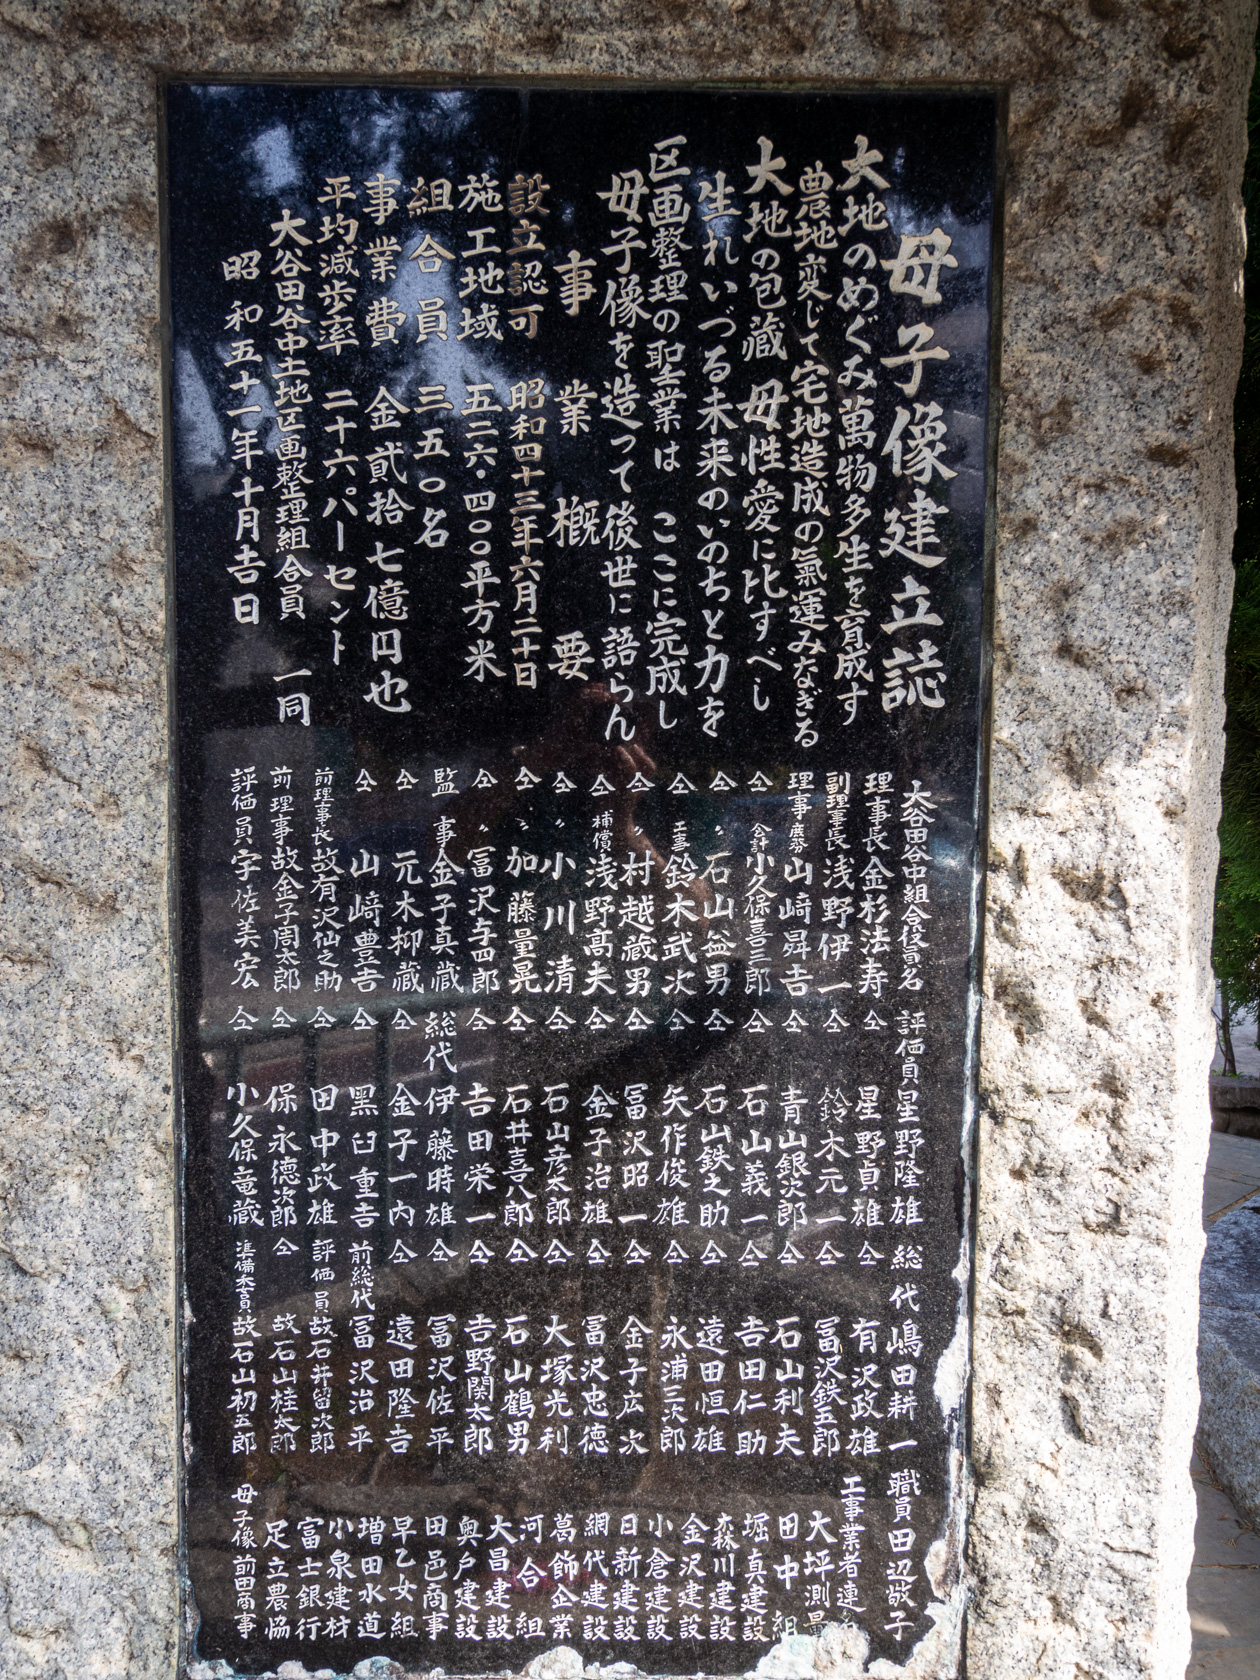 母子像建立誌
大地のめぐみ萬物多生を育成す
農地変じて宅地造成の氣運みなぎる
大地の包蔵 母性愛に比すべし
生れいづる未来のいのちと力を
区画整理の聖業は ここに完成し
母子像を造って後世に語らん
事業概要
設立認可 昭和四十三年六月二十日
施工地域 五二六・四〇〇平方米
組合員 三五〇名
事業費 金貮拾七億円也
平均減歩率 二十六パーセント
大谷田谷中土地区画整理組合員 一同
昭和五十一年十月吉日
大谷田谷中組合役員名
理事長 金杉法寿
副理事長 浅野伊一
理事 庶務 山﨑舜吉
仝 会計 小久保喜三郎
仝 〃 石山益男
仝 工事 鈴木武次
仝 〃 村越蔵男
仝 補償 浅野髙夫
仝 〃 小川清
仝 〃 加藤量晃
仝 〃 冨沢与四郎
監事 金子真蔵
仝 元木柳蔵
仝 山﨑豊吉
前理事長 故有沢仙之助
前理事 故金子周太郎
評価員 宇佐美宏
評価員 星野隆雄
仝 星野貞雄
仝 鈴木元一
仝 青山銀次郎
仝 石山義一
仝 石山鉄之助
仝 矢作俊雄
仝 冨沢昭一
仝 金子治雄
仝 石山彦太郎
仝 石井喜八郎
仝 吉田栄一
総代 伊藤時雄
仝 金子一内
仝 黒臼重吉
仝 田中政雄
仝 保永德次郎
仝 小久保竜蔵
総代 嶋田耕一
仝 有沢政雄
仝 冨沢鉄五郎
仝 石山利夫
仝 吉田仁助
仝 遠田恒雄
仝 永浦三次郎
仝 金子広次
仝 冨沢忠德
仝 大塚光利
仝 石山鶴男
仝 吉野関太郎
仝 冨沢佐平
仝 遠田隆吉
前総代 冨沢治平
評価員 故石井留次郎
仝 故石山桂太郎
準備委員 故石山初五郎
職員 田辺敬子
工事業者連名
大坪測量
田中組
堀真建設
森川建設
金沢建設
小倉建設
日新建設
網代建設
葛飾企業
河合組
大昌建設
奥戸建設
田邑商事
早乙女組
増田水道
小泉建材
富士銀行
足立農協
母子像 前田商事